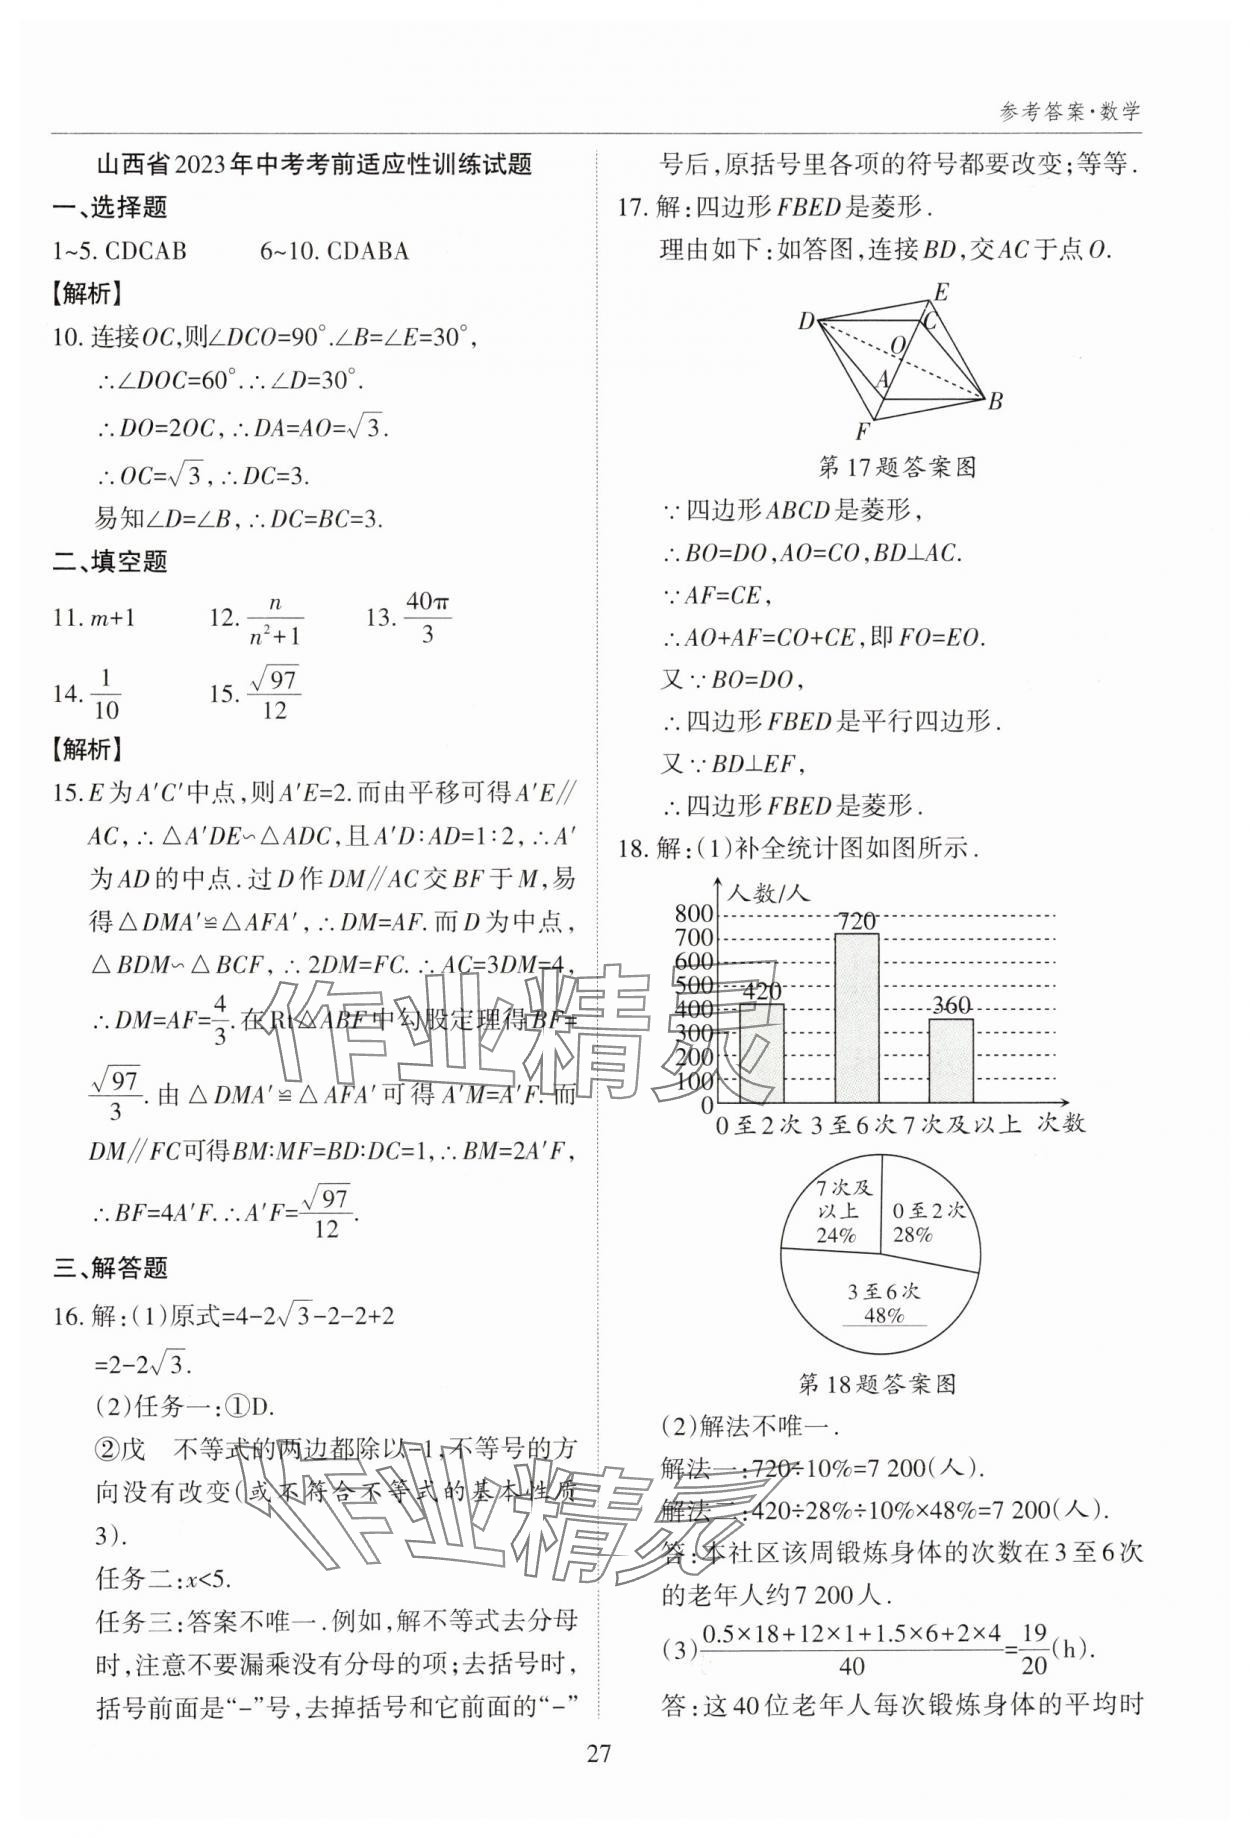 参考答案·数学
山西省2023年中考考前适应性训练试题
一、选择题
1~5. CDCAB 6~10. CDABA
【解析】
10. 连接OC,则∠DCO=90°.∠B=∠E=30°,
∴∠DOC=60°.∴∠D=30°.
∴DO=2OC,∴DA=AO=√3.
∴OC=√3,∴DC=3.
易知∠D=∠B,∴DC=BC=3.
二、填空题
11. m+1 12. n/(n²+1) 13. 40π/3
14. 1/10 15. √97/12
【解析】
15. E为A′C′中点,则A′E=2.而由平移可得A′E∥
AC,∴△A′DE∽△ADC,且A′D∶AD=1∶2,∴A′
为AD的中点.过D作DM∥AC交BF于M,易
得△DMA′≌△AFA′,∴DM=AF.而D为中点,
△BDM∽△BCF,∴2DM=FC.∴AC=3DM=4,
∴DM=AF=4/3.在Rt△ABF中勾股定理得BF=
√97/3.由△DMA′≌△AFA′可得A′M=A′F.而
DM∥FC可得BM∶MF=BD∶DC=1,∴BM=2A′F,
∴BF=4A′F.∴A′F=√97/12.
三、解答题
16. 解:(1)原式=4-2√3-2-2+2
=2-2√3.
(2)任务一:①D.
②戊 不等式的两边都除以-1,不等号的方
向没有改变(或不符合不等式的基本性质
3).
任务二:x<5.
任务三:答案不唯一.例如,解不等式去分母
时,注意不要漏乘没有分母的项;去括号时,
括号前面是“-”号,去掉括号和它前面的“-”
号后,原括号里各项的符号都要改变;等等.
17. 解:四边形FBED是菱形.
理由如下:如答图,连接BD,交AC于点O.
E
D
C
O
A
B
F
第17题答案图
∵四边形ABCD是菱形,
∴BO=DO,AO=CO,BD⊥AC.
∵AF=CE,
∴AO+AF=CO+CE,即FO=EO.
又∵BO=DO,
∴四边形FBED是平行四边形.
又∵BD⊥EF,
∴四边形FBED是菱形.
18. 解:(1)补全统计图如图所示.
人数/人
800
700
600
500
400
300
200
100
0
420
720
360
0至2次 3至6次 7次及以上 次数
7次及
以上
24%
0至2次
28%
3至6次
48%
第18题答案图
(2)解法不唯一.
解法一:720÷10%=7 200(人).
解法二:420÷28%÷10%×48%=7 200(人).
答:本社区该周锻炼身体的次数在3至6次
的老年人约7 200人.
(3)(0.5×18+12×1+1.5×6+2×4)/40=19/20(h).
答:这40位老年人每次锻炼身体的平均时
27
作业精灵
作业精灵